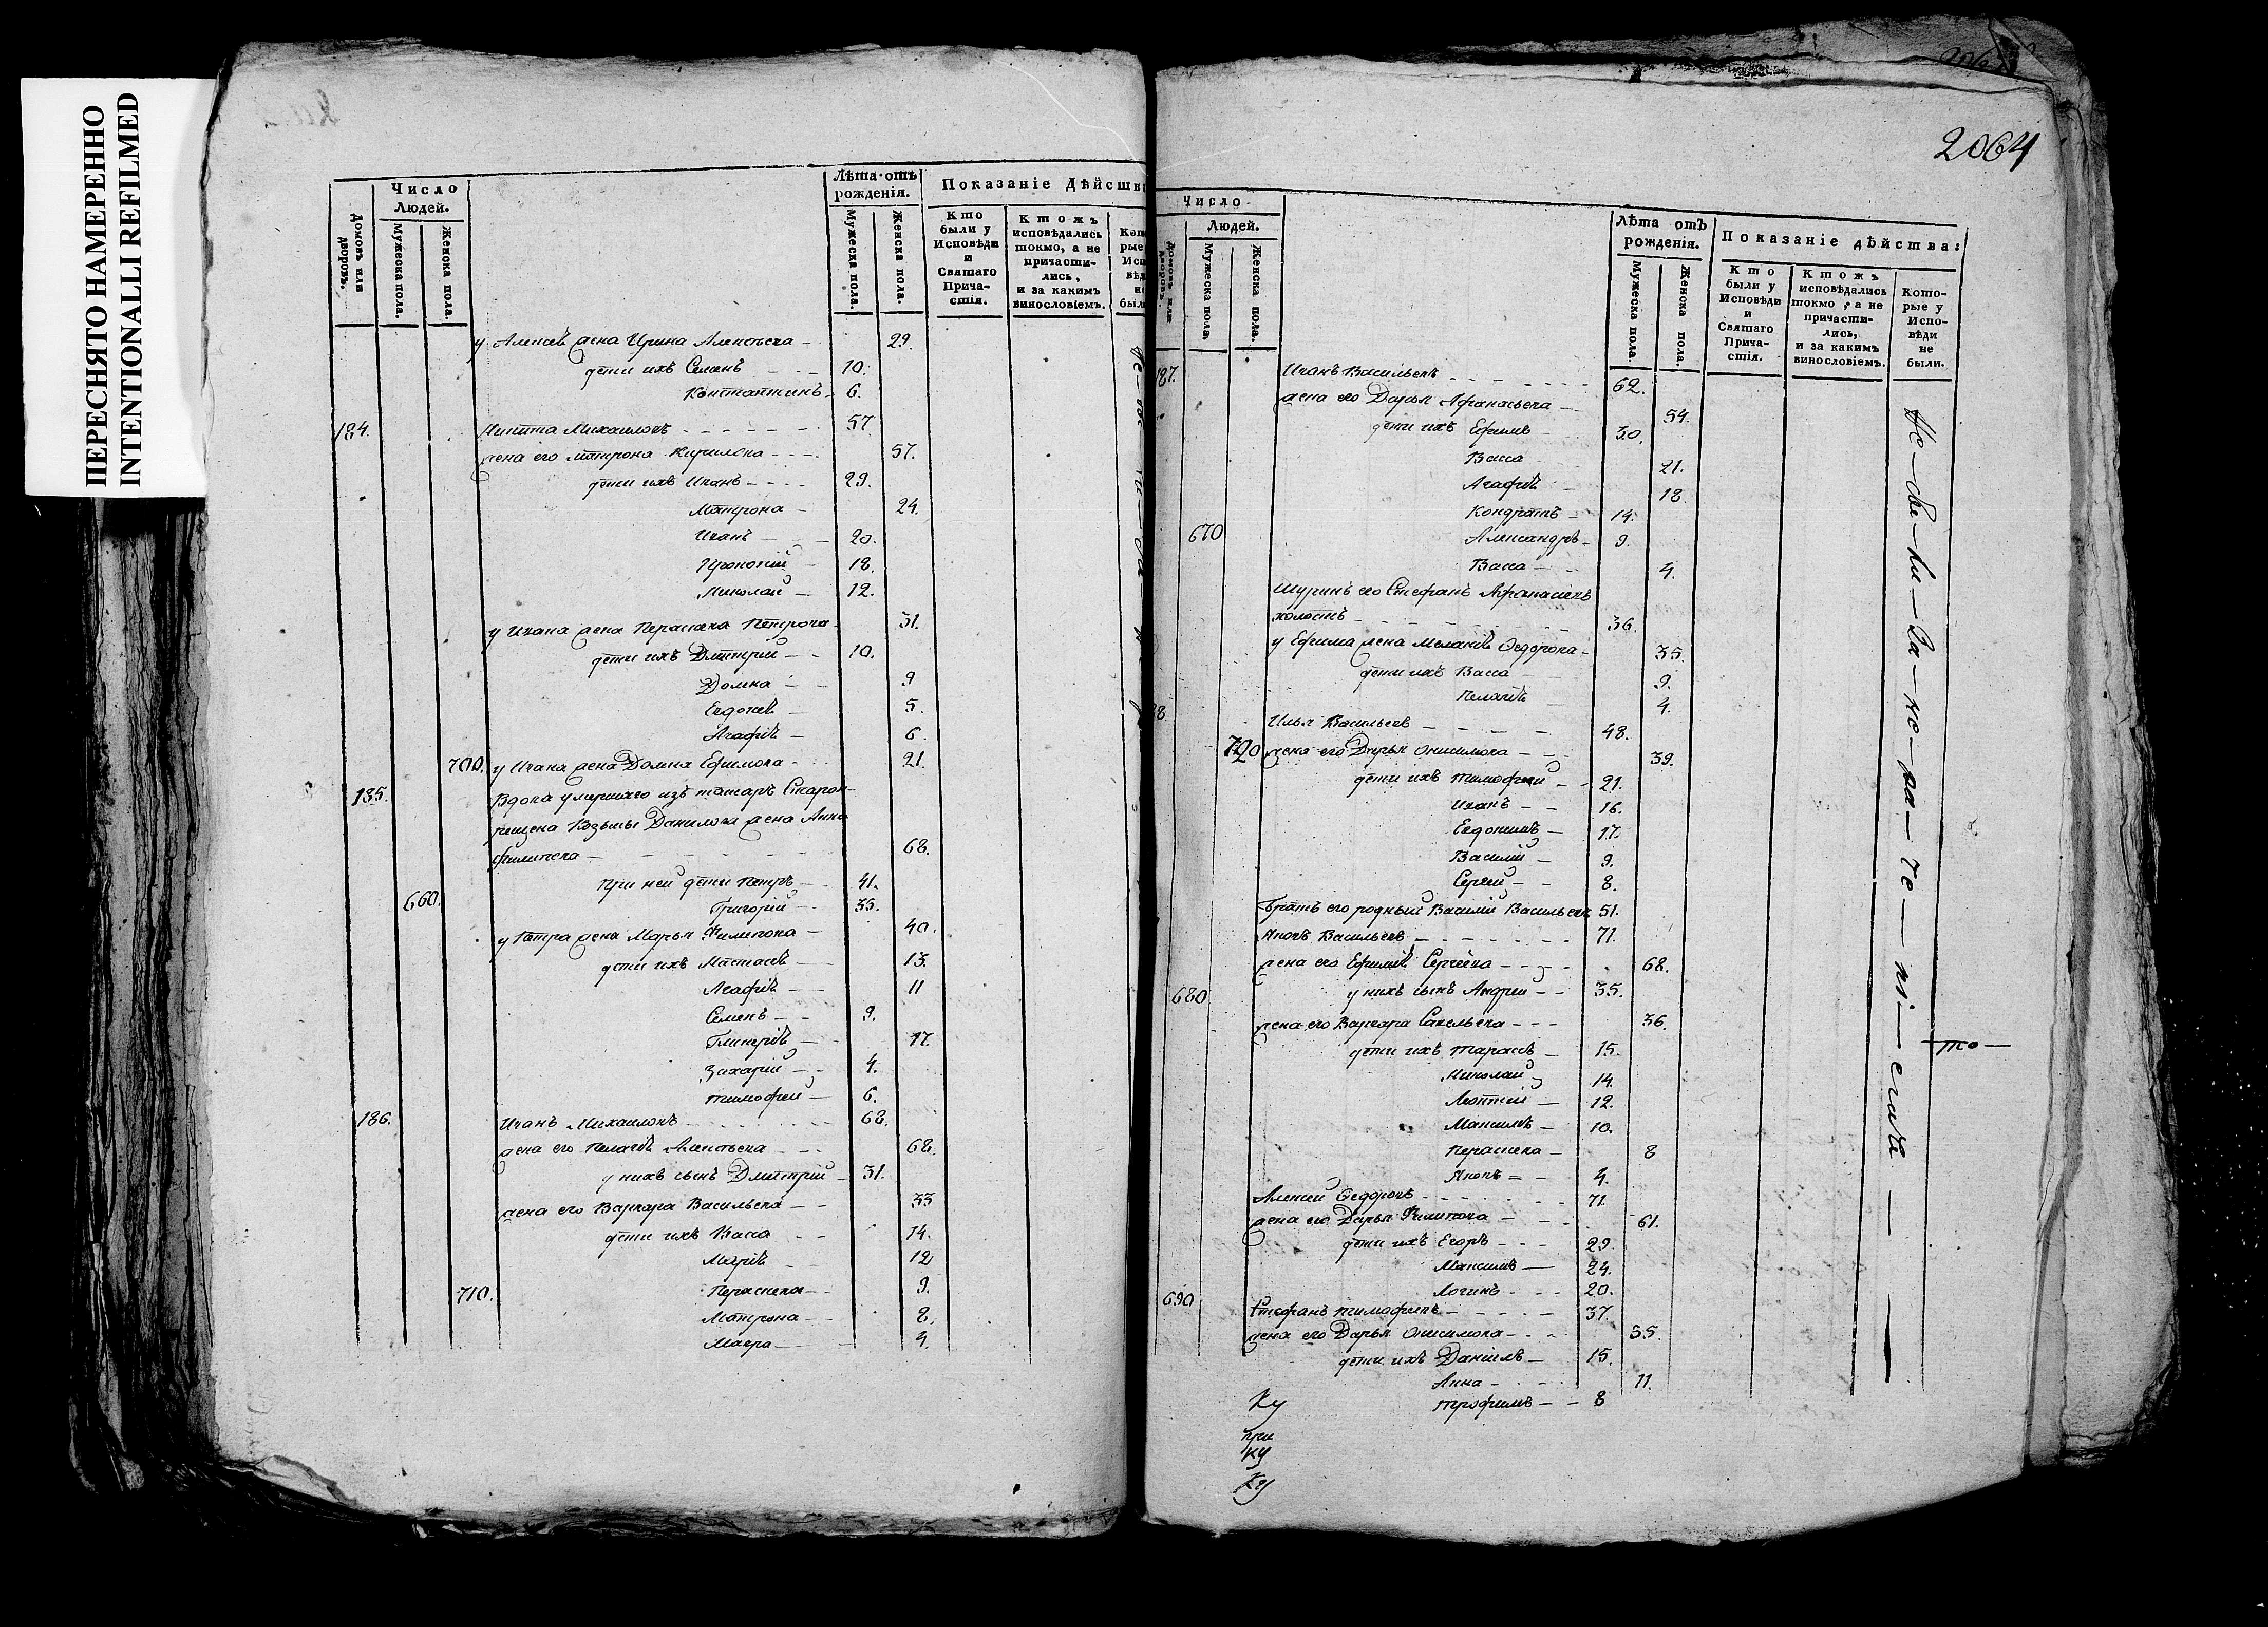 ПЕРЕСНЯТО НАМЕРЕННО
INTENTIONALLI REFILMED
Домовъ или дворовъ.
Число Людей.
Мужеска пола.
Женска пола.
Лѣта отъ рожденія.
Мужеска пола.
Женска пола.
Показаніе Дѣйств
Кто были у Исповѣди и Святаго Причастія.
Ктожъ исповѣдались токмо, а не причастились, и за какимъ винословіемъ.
у Алексѣя жена Ирина Алексѣева 29.
дети ихъ Семенъ 10.
Константинъ 6.
184. Никита Михаиловъ 57.
жена его Матрона Кирилова 57.
дети ихъ Иванъ 29.
Матрона 24.
Иванъ 20.
Прокопій 18.
Николай 12.
у Ивана жена Параскева Петрова 31.
дети ихъ Дмитрій 10.
Домна 9
Евдокія 5.
Агафія 6.
700. у Ивана жена Домна Ефимова 21.
185. Вдова умершаго изъ татаръ Старок-
рещена Козьмы Данилова жена Анна
Филипева 68.
при ней дети Петръ 41.
660. Григорій 35.
у Петра жена Марья Филипова 40.
дети ихъ Настасія 13.
Агафія 11
Семенъ 9.
Гликерія 17.
Захарій 4.
Тимофей 6.
186. Иванъ Михаиловъ 68.
жена его Пелагія Алексѣева 68.
у нихъ сынъ Дмитрій 31.
жена его Варвара Васильева 33
дети ихъ Васса 14.
Марія 12
710. Параскева 9.
Матрона 8.
Мавра 4.
2064
Число
Домовъ или дворовъ.
Людей.
Мужеска пола
Женска пола.
Лѣта отъ рожденія.
Мужеска пола.
Женска пола.
Показаніе дѣйства:
Кто были у Исповѣди и Святаго Причастія.
Ктожъ исповѣдались токмо, а не причастились, и за какимъ винословіемъ.
Которые у Исповѣди не были.
187. Иванъ Васильевъ 62.
жена его Дарья Афанасьева 54.
дети ихъ Ефимъ 30.
Васса 21.
Агафія 18.
Кондратъ 14.
670 Александръ 9.
Васса 4.
Шуринъ его Стефанъ Афанасіевъ
холостъ 36.
у Ефима жена Меланія Ѳедорова 35.
дети ихъ Васса 9.
Пелагія 4.
88. Илья Васильевъ 48.
720 жена его Дарья Онисимова 39.
дети ихъ Тимофей 21.
Иванъ 16.
Евдокимъ 17.
Василій 9.
Сергей 8.
Братъ его родный Василій Васильевъ 51.
Яковъ Васильевъ 71.
жена его Ефимія Сергѣева 68.
680 у нихъ сынъ Андрей 35.
жена его Варвара Савельева 36.
дети ихъ Тарасій 15.
Николай 14.
Леонтій 12.
Максимъ 10.
Параскева 8
Яковъ 4.
Алексей Ѳедоровъ 71.
жена его Дарья Филипова 61.
дети ихъ Егоръ 29.
Максимъ 24.
Логинъ 20.
690 Стефанъ Тимофеевъ 37.
жена его Дарья Онисимова 35.
дети ихъ Даніилъ 15.
Анна 11.
Трофимъ 8
то
Ку
при
Ку
Ку